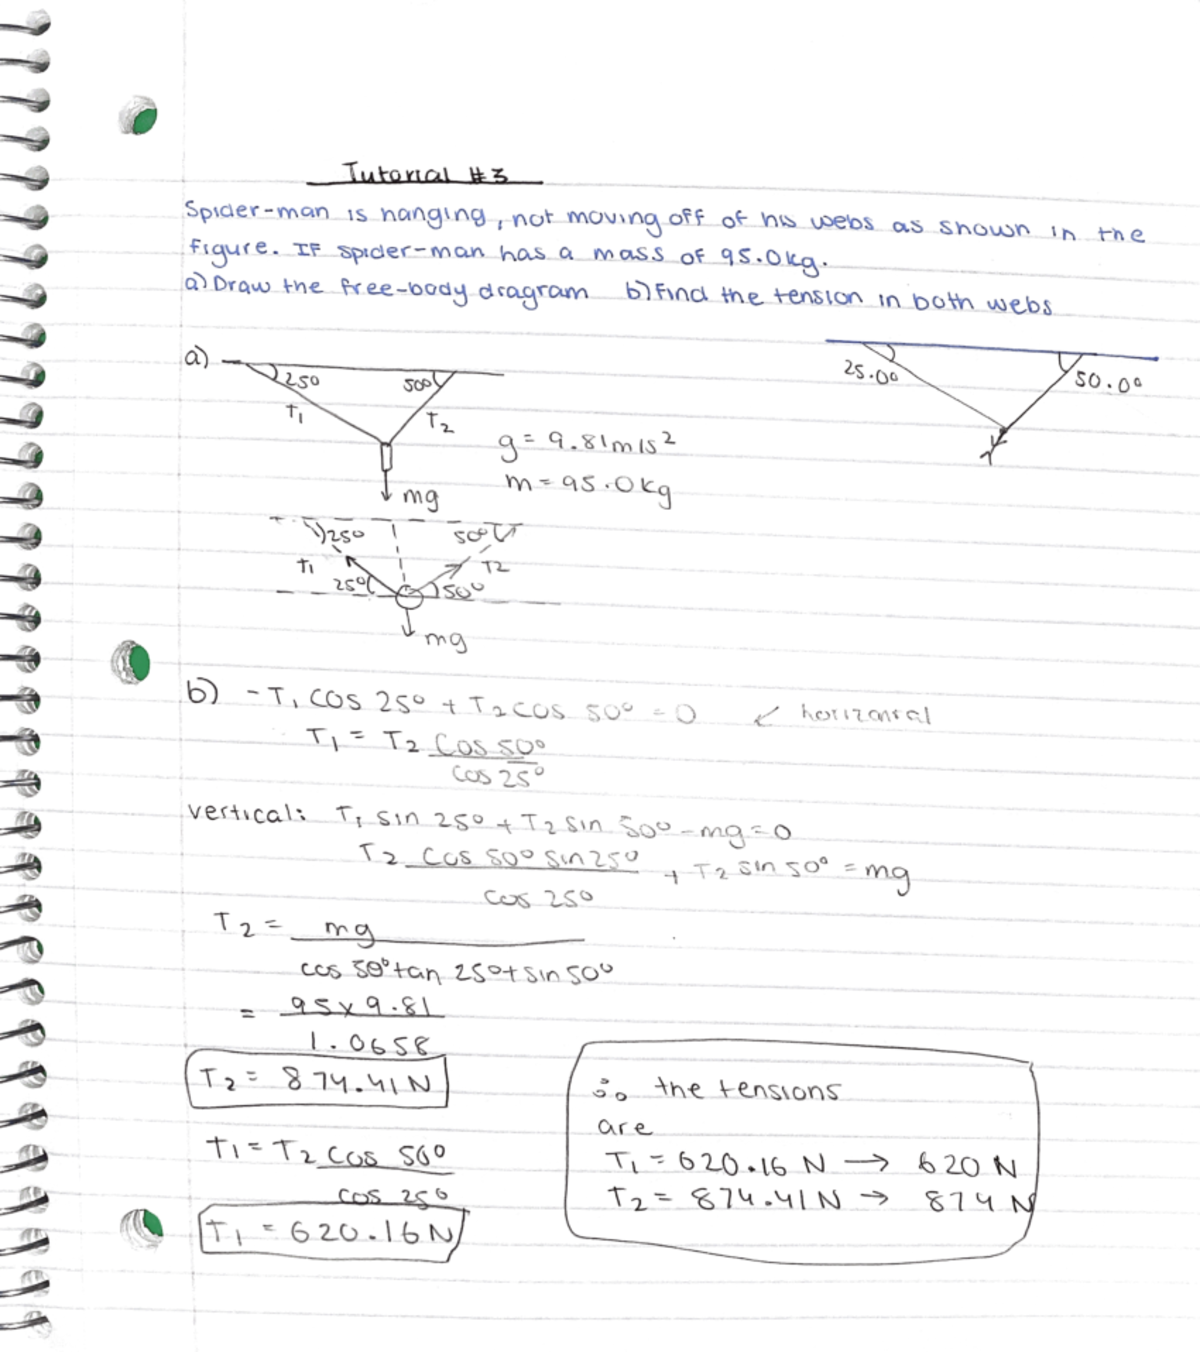 Tutorial #3
Spider-man is hanging, not moving off of his webs as shown in the
figure. IF spider-man has a mass of 95.0kg.
a) Draw the free-body diagram b) Find the tension in both webs
a)
25°
50°
T1
T2
mg
g = 9.81m/s²
m = 95.0kg
25.0°
50.0°
25°
50°
T1
T2
25°
50°
mg
b) -T1 cos 25° + T2 cos 50° = 0 ← horizontal
T1 = T2 cos 50°
cos 25°
vertical: T1 sin 25° + T2 sin 50° - mg = 0
T2 cos 50° sin 25° + T2 sin 50° = mg
cos 25°
T2 = mg
cos 50° tan 25° + sin 50°
= 95 x 9.81
1.0658
T2 = 874.41 N
T1 = T2 cos 50°
cos 25°
T1 = 620.16 N
∴ the tensions
are
T1 = 620.16 N → 620 N
T2 = 874.41 N → 874 N